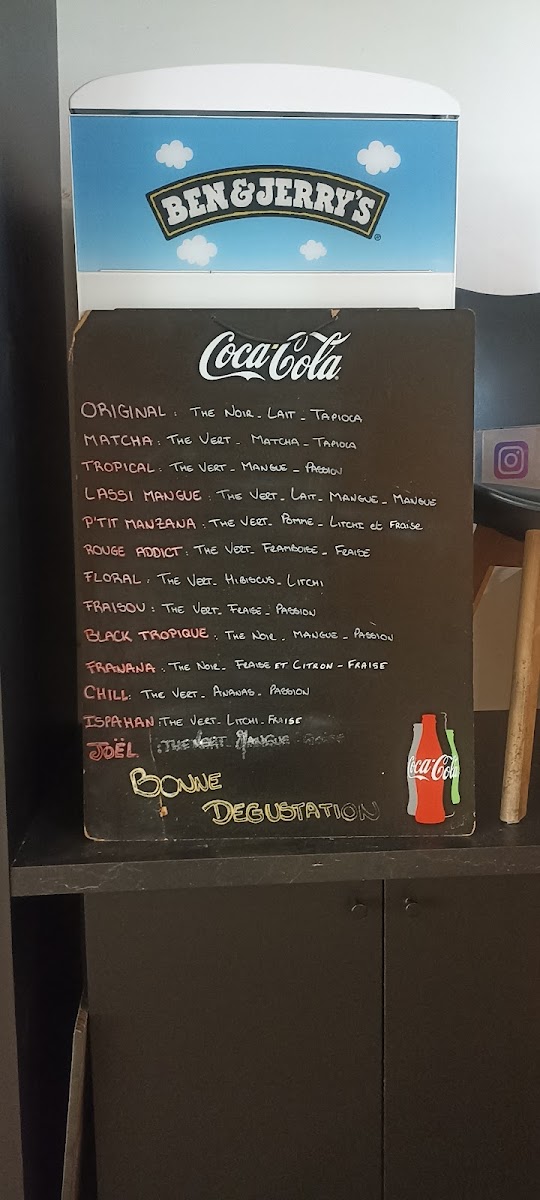 BEN & JERRY'S
Coca-Cola
ORIGINAL : THE NOIR - LAIT - TAPIOCA
MATCHA : THE VERT - MATCHA - TAPIOCA
TROPICAL : THE VERT - MANGUE - PASSION
LASSI MANGUE : THE VERT - LAIT - MANGUE - MANGUE
P'TIT MANZANA : THE VERT - POMME - LITCHI et FRAISE
ROUGE ADDICT : THE VERT - FRAMBOISE - FRAISE
FLORAL : THE VERT - HIBISCUS - LITCHI
FRAISOU : THE VERT - FRAISE - PASSION
BLACK TROPIQUE : THE NOIR - MANGUE - PASSION
FRANANA : THE NOIR - FRAISE ET CITRON - FRAISE
CHILL : THE VERT - ANANAS - PASSION
ISPAHAN : THE VERT - LITCHI - FRAISE
JOËL : THE VERT - MANGUE -
BONNE
DEGUSTATION
Coca-Cola